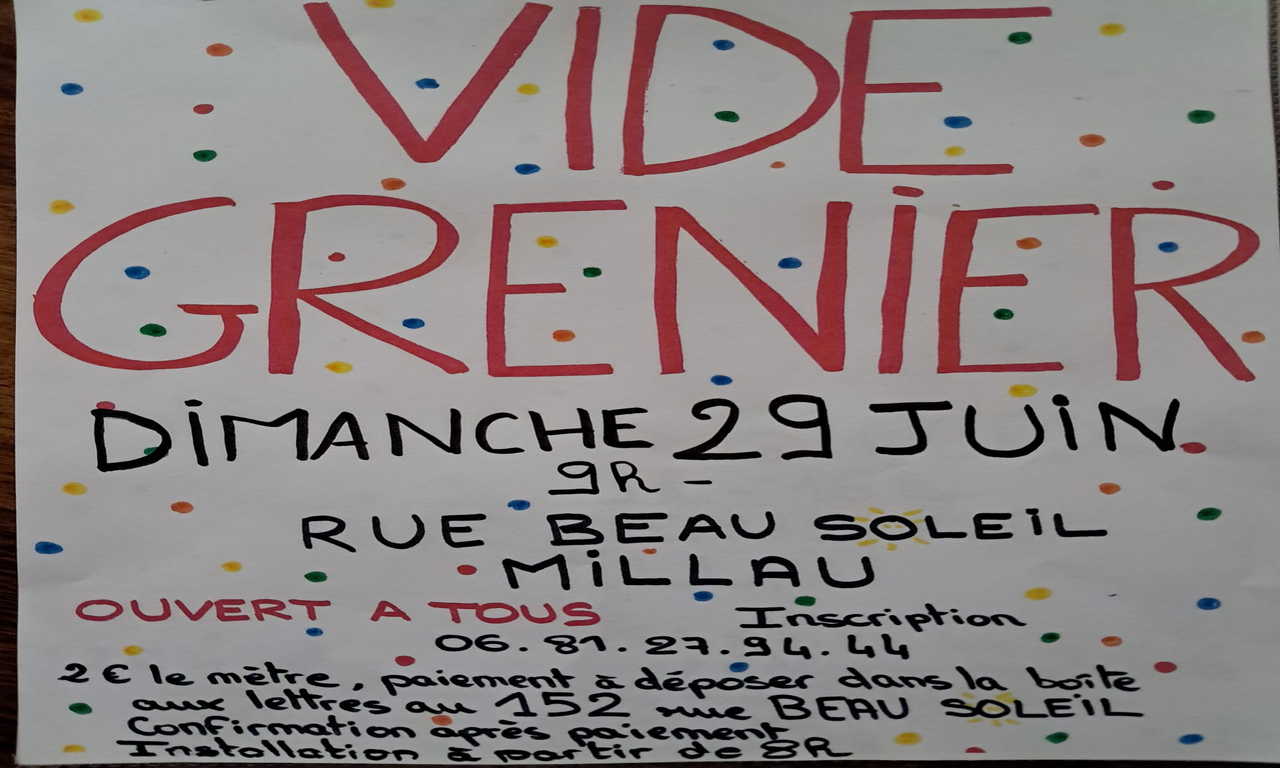 VIDE
GRENIER
DIMANCHE 29 JUIN
9h -
RUE BEAU SOLEIL
MILLAU
OUVERT A TOUS Inscription
06.81.27.94.44
2 € le mètre, paiement à déposer dans la boîte
aux lettres au 152 rue BEAU SOLEIL
Confirmation après paiement
Installation à partir de 8h